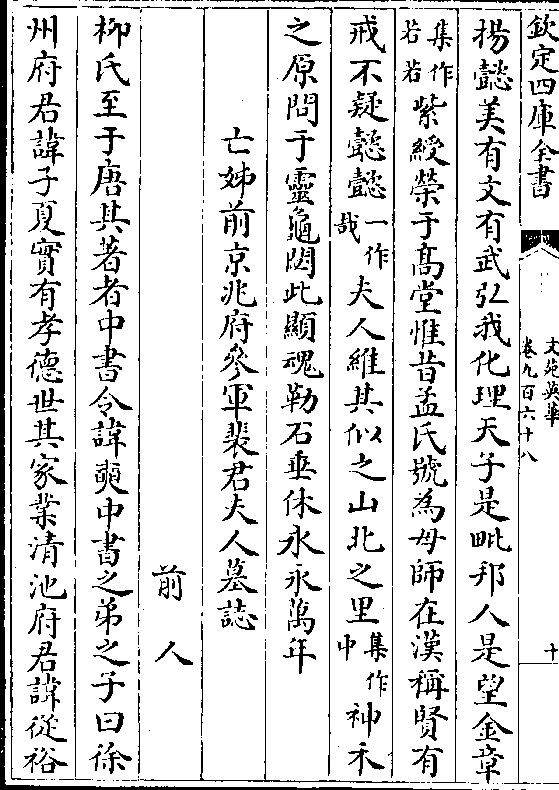 欽定四庫全書
文苑英華
卷九百六十八
十
揚懿美有文有武弘我化理天子是毗邦人是望金章
集作若若紫綬榮于髙堂惟昔孟氏號為母師在漢稱賢有
戒不疑懿懿一作哉夫人維其似之山北之里集作中神禾
之原問于靈龜閟此顯魂勒石垂休永永萬年
亡姊前京兆府參軍裴君夫人墓誌
前人
栁氏至于唐其著者中書令諱奭中書之弟之子曰徐
州府君諱子夏實有孝德世其家業清池府君諱從裕